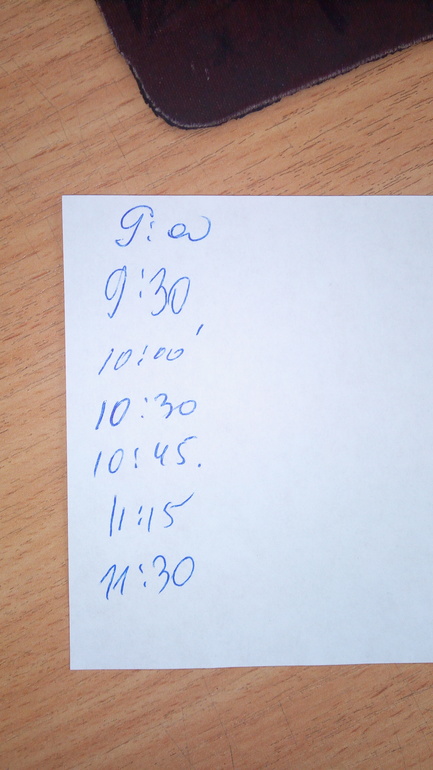 9:00
9:30
10:00'
10:30
10:45.
11:15
11:30